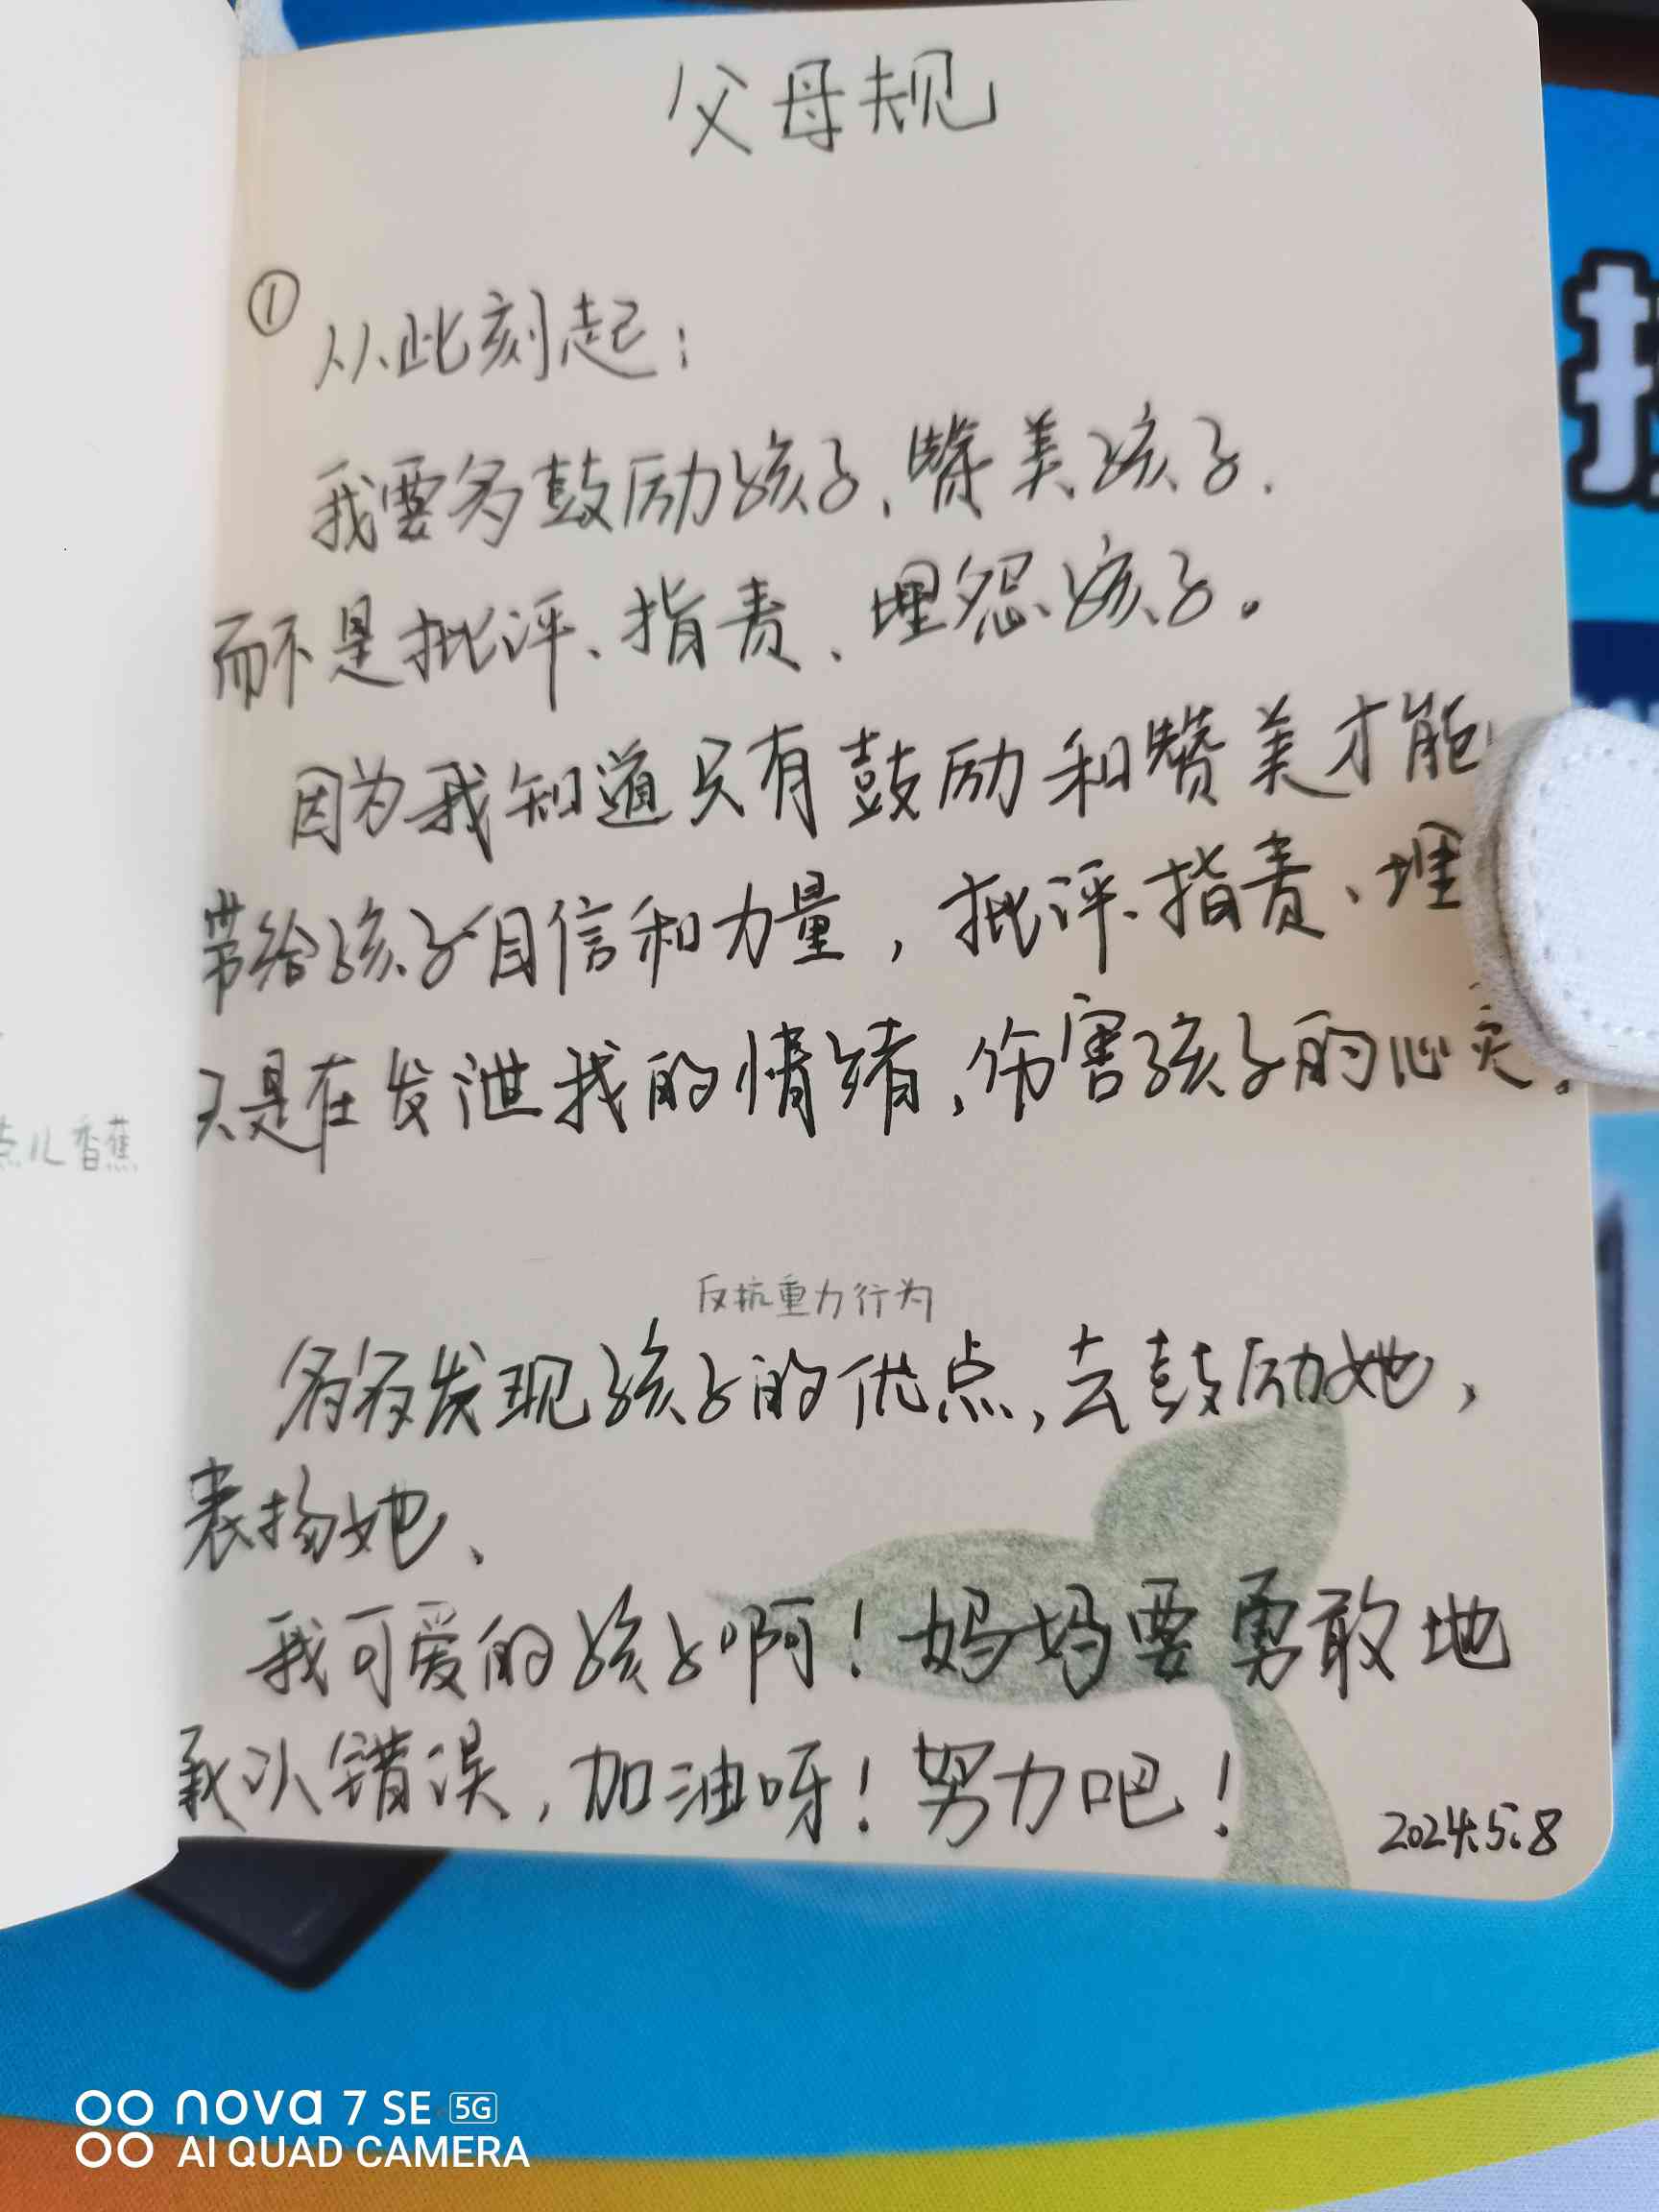 父母规
①从此刻起:
我要多鼓励孩子、赞美孩子.
而不是批评、指责、埋怨孩子。
因为我知道只有鼓励和赞美才能
带给孩子自信和力量，批评、指责、埋
只是在发泄我的情绪，伤害孩子的心灵。
点儿香蕉
反抗重力行为
多多发现孩子的优点，去鼓励她，
表扬她、
我可爱的孩子啊！妈妈要勇敢地
承认错误，加油呀！努力吧！
2024.5.8
nova 7 SE 5G
AI QUAD CAMERA